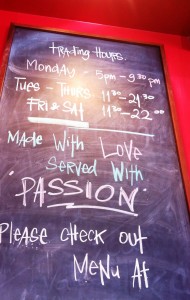 Trading Hours.
Monday - 5pm - 9:30pm
Tues - Thurs 11:30-21:30
Fri & Sat 11:30-22:00
Made With Love
Served With
"PASSION"
Please check out
Menu At